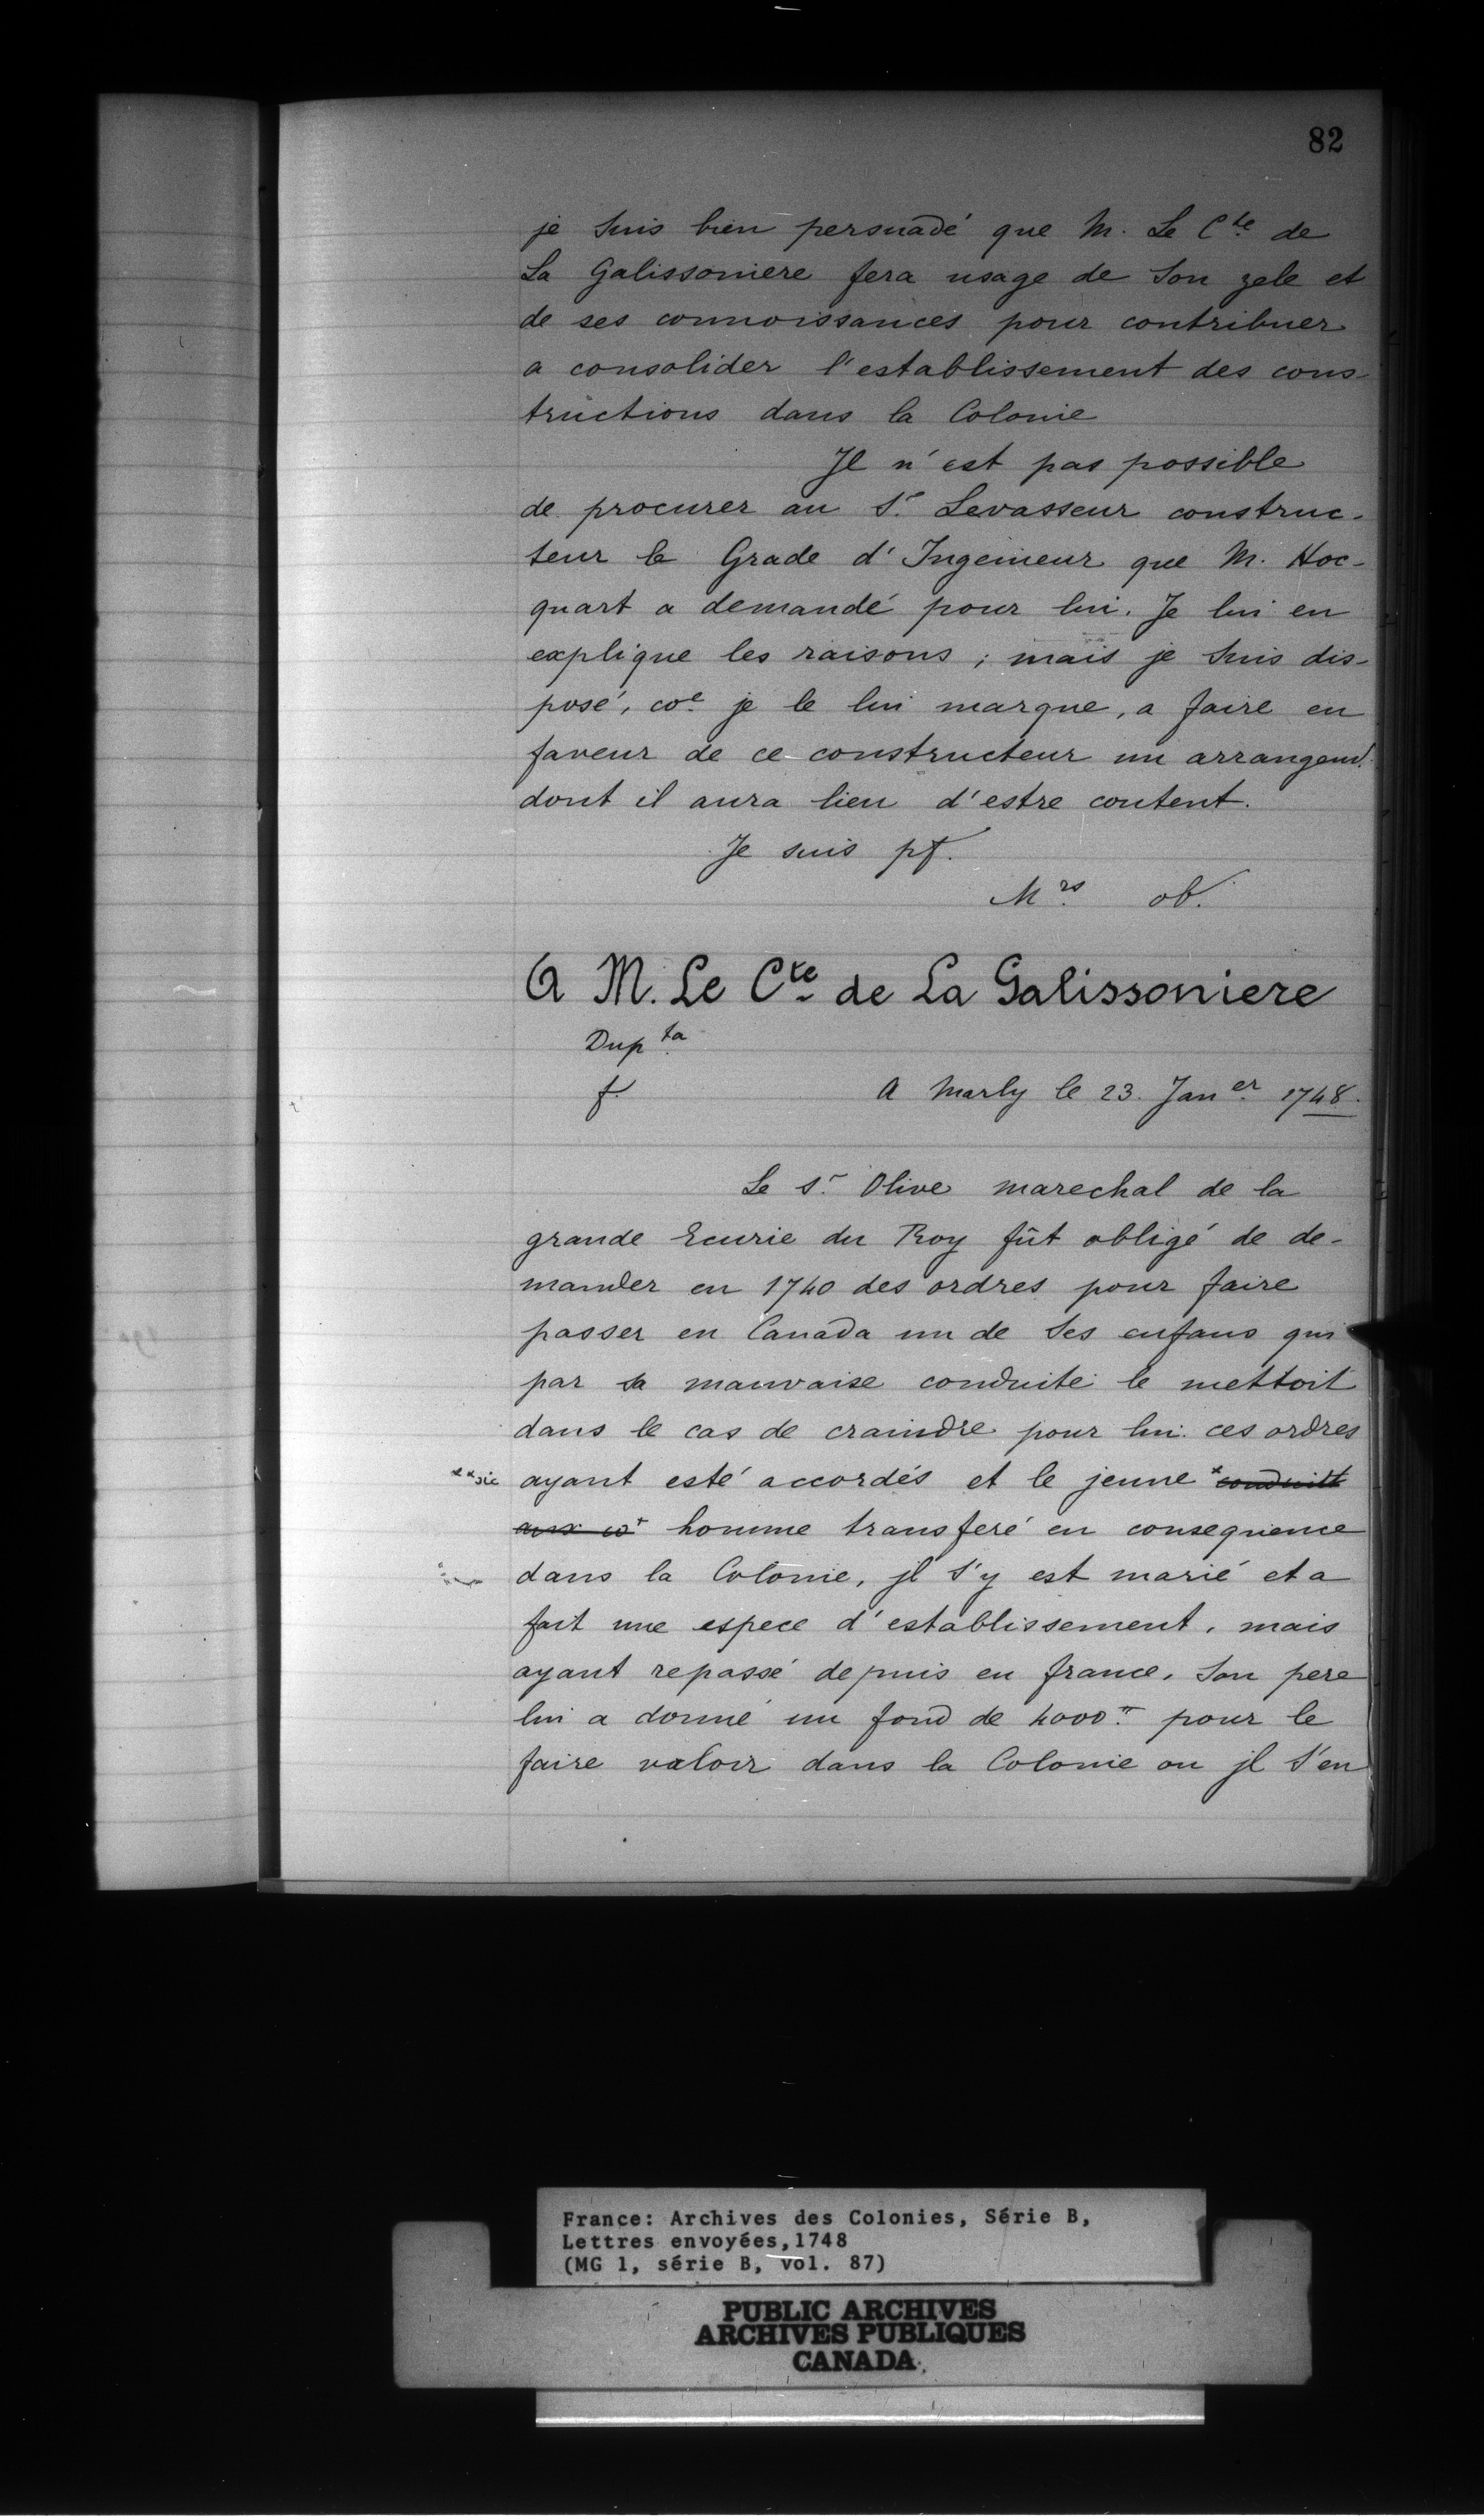 82
je suis bien persuadé que M. Le Cte de
La Galissoniere fera usage de son zele et
de ses connoissances pour contribuer
a consolider l'establissement des cons-
tructions dans la Colonie
Jl n'est pas possible
de procurer au Sr. Levasseur construc-
teur le Grade d'Ingenieur que M. Hoc-
quart a demandé pour lui. Je lui en
explique les raisons ; mais je suis dis-
posé, coe je le lui marque, a faire en
faveur de ce constructeur un arrangemt.
dont il aura lieu d'estre content.
Je suis pt.
Mrs ob.
A M. Le Cte de La Galissoniere
Dup ta
f.
A Marly le 23. Janer. 1748.
Le Sr. Olive marechal de la
grande Ecurie du Roy fût obligé de de-
mander en 1740 des ordres pour faire
passer en Canada un de ses enfans qui
par sa mauvaise conduite le mettoit
dans le cas de craindre pour lui. ces ordres
xx sic ayant esté accordés et le jeune x conduitt
aux co x homme transferé en consequence
dans la Colonie, jl s'y est marié et a
fait une espece d'establissement, mais
ayant repassé depuis en france, son pere
lui a donné un fond de 4000tt pour le
faire valoir dans la Colonie ou jl s'en
France: Archives des Colonies, Série B,
Lettres envoyées,1748
(MG 1, série B, vol. 87)
PUBLIC ARCHIVES
ARCHIVES PUBLIQUES
CANADA